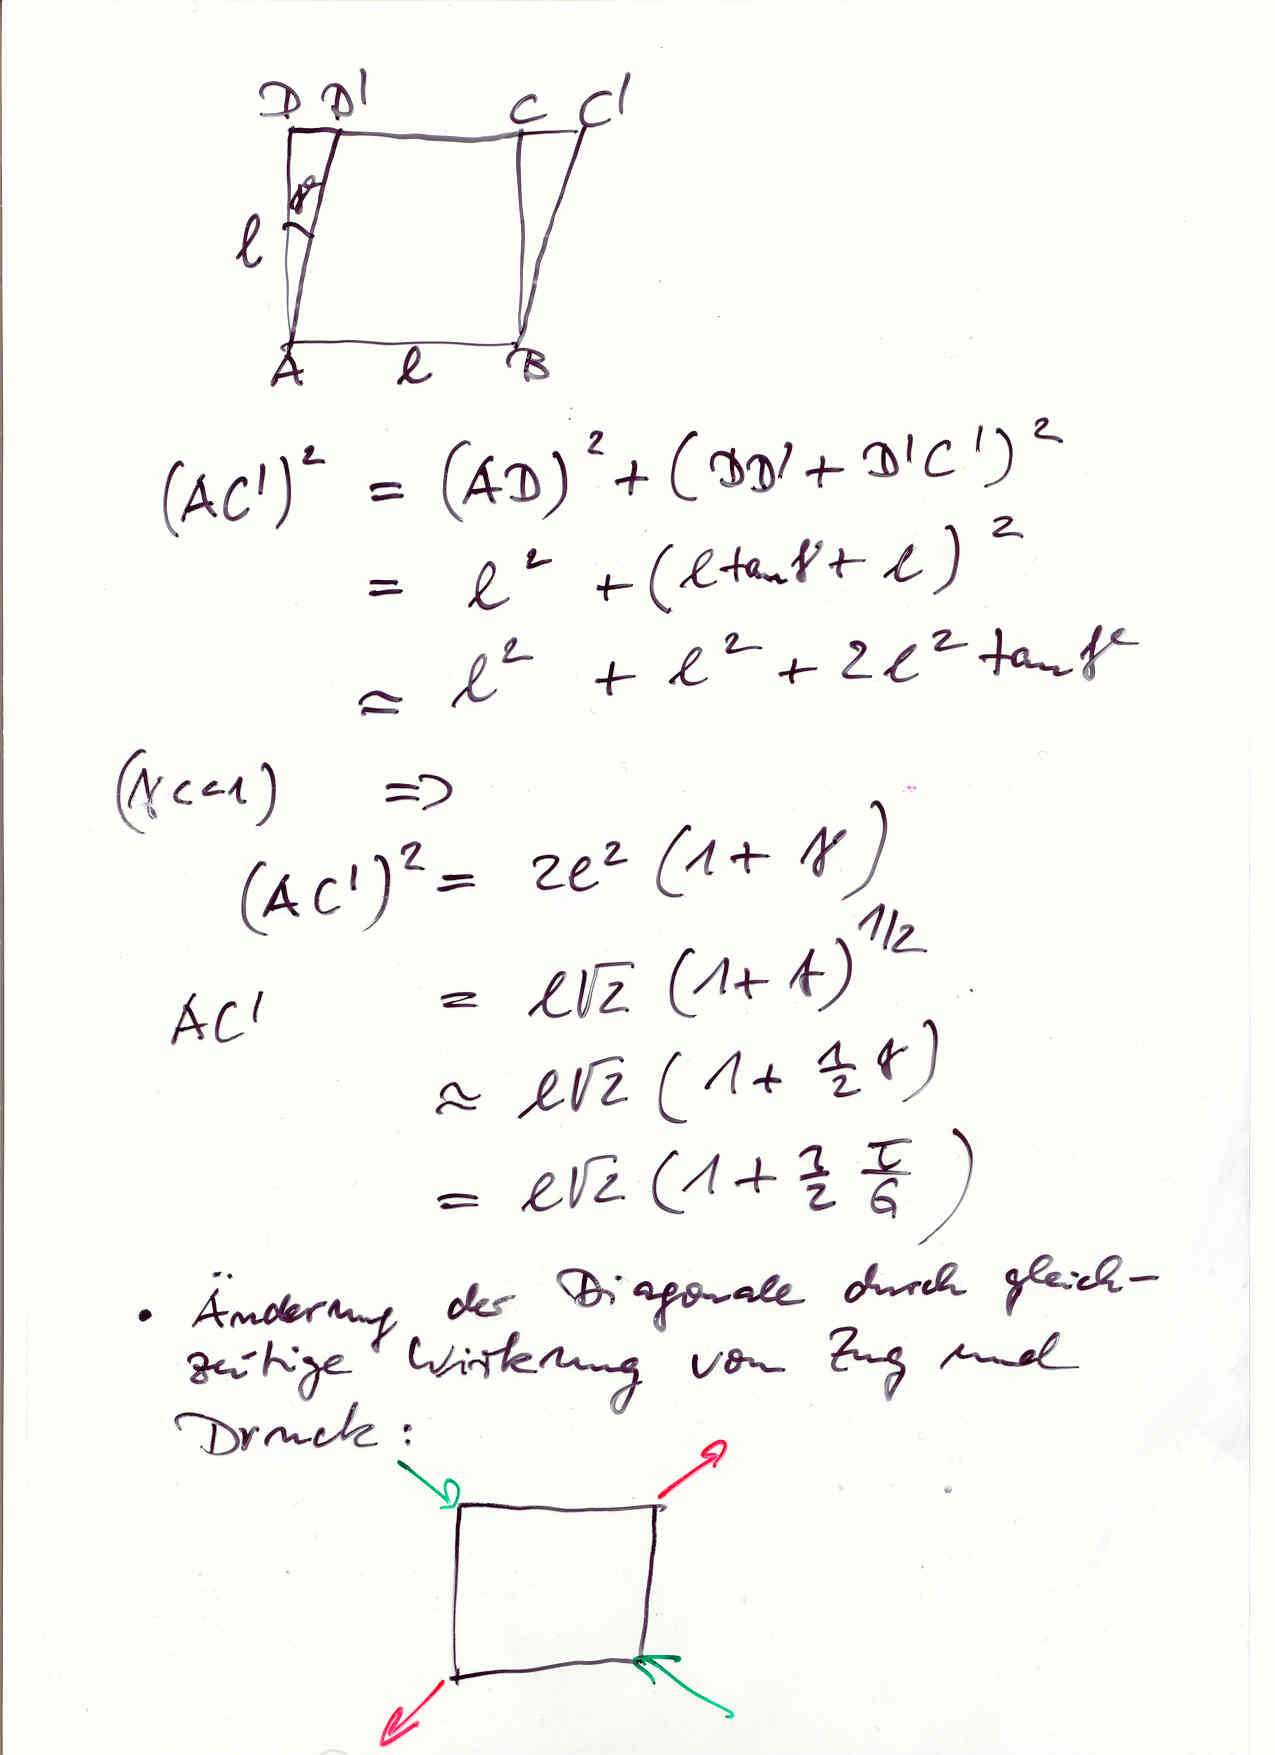 D D' C C'
γ
l
A l B
(AC')² = (AD)² + (DD' + D'C')²
= l² + (l tanγ + l)²
≃ l² + l² + 2l² tanγ
(γ<<1) =>
(AC')² = 2l² (1 + γ)
AC' = l√2 (1 + γ)^1/2
≈ l√2 (1 + 1/2 γ)
= l√2 (1 + 1/2 τ/G)
• Änderung der Diagonale durch gleich-
zeitige Wirkung von Zug und
Druck: